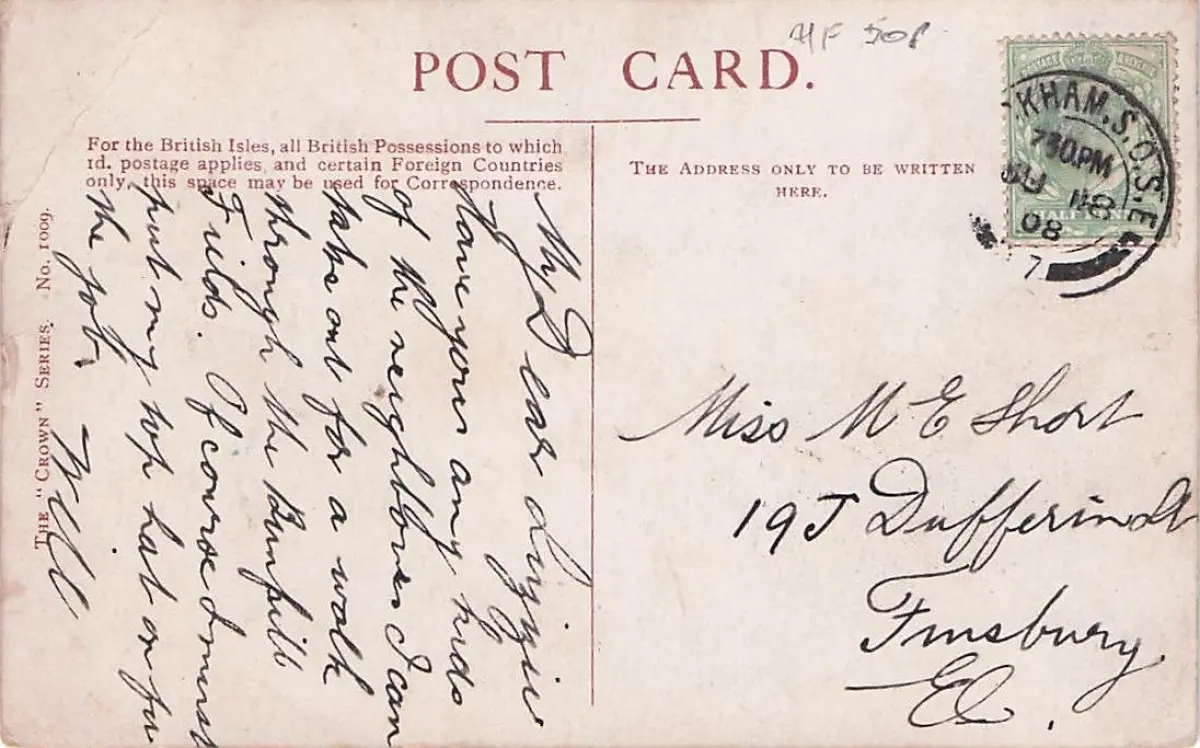 HF 50p
POST CARD.
For the British Isles, all British Possessions to which
1d. postage applies, and certain Foreign Countries
only, this space may be used for Correspondence.
THE ADDRESS ONLY TO BE WRITTEN
HERE.
KHAM. S.O. S.E
730PM
08
7
HALF PENNY
THE "CROWN" SERIES. No. 1009.
My Dear Lizzie
Have you any kids
of the neighbours I can
take out for a walk
through the Bunhill
Fields. Of course I must
put my top hat on for
the job.
Will
Miss M E Short
19J Dufferin St
Finsbury
EC.